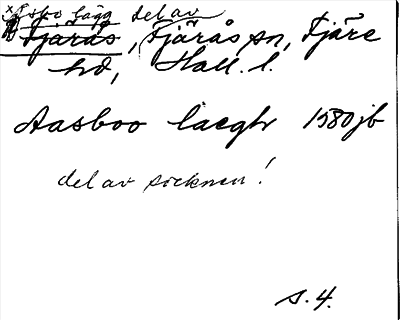 ×Åsbo lägg del av
Fjärås, Fjärås sn, Fjäre
hd, Hall. l.
Aasboo laegh 1580 jb
del av socknen!
s. 4.